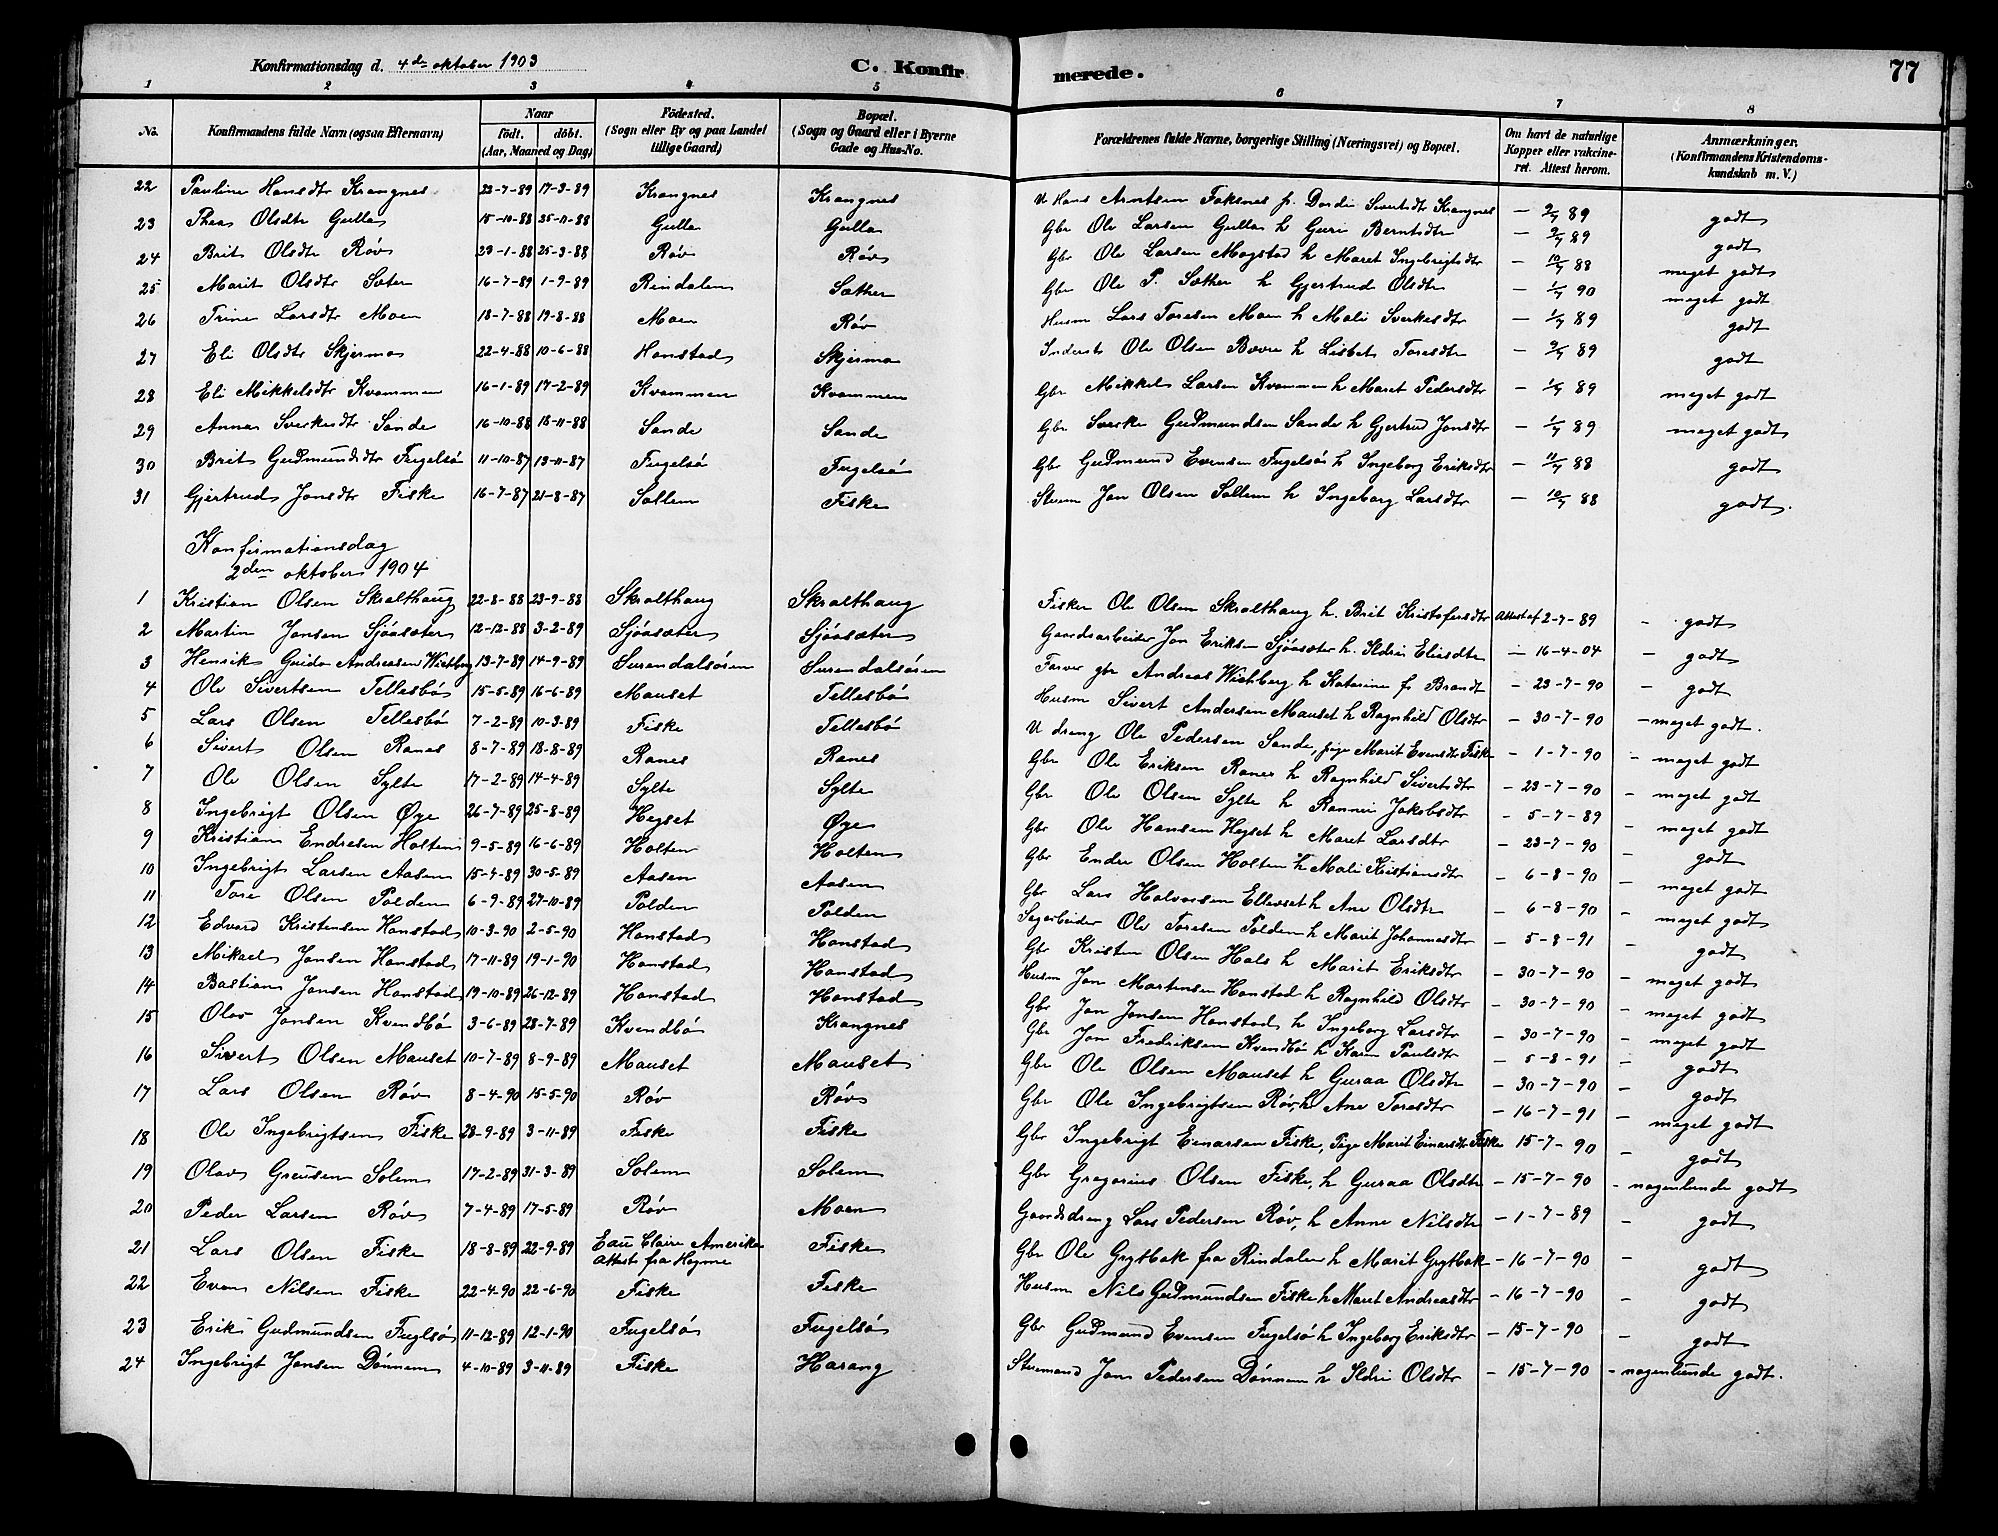 Konfirmationsdag d. 4de oktober 1903 C. Konfir merede. 77
1 2 3 4 5 6 7 8
No. Konfirmandens fulde Navn (ogsaa Efternavn) Naar födt. döbt. (Aar, Maaned og Dag) Födested. (Sogn eller By og paa Landet tillige Gaard) Bopæl. (Sogn og Gaard eller i Byerne Gade og Hus-No. Forældrenes fulde Navne, borgerlige Stilling (Næringsvei) og Bopæl. Om havt de naturlige Kopper eller vakcineret. Attest herom. Anmærkninger. (Konfirmandens Kristendomskundskab m. V.)
22 Pauline Hansdtr Krangnes 23-7-89 17-3-89 Krangnes Krangnes U Hans Arntsen Foksnes p. Dordi Sivertsdt Krangnes - 2/7 89 godt
23 Thea Olsdtr Gulla 15-10-88 25-11-88 Gulla Gulla Gbr Ole Larsen Gulla h Guri Berntsdtr - 2/7 89 godt
24 Brit Olsdtr Røv 23-1-88 25-3-88 Røv Røv Gbr Ole Larsen Mogstad h Maret Ingebrigtsdtr - 10/7 88 meget godt
25 Marit Olsdtr Sæter 16-7-89 1-9-89 Rindalen Sæther Gbr Ole P. Sæther h Gjertrud Olsdtr - 1/7 90 meget godt
26 Trine Larsdtr Moen 18-7-88 19-8-88 Moen Røv Husm Lars Toresen Moen h Mali Sverkesdtr - 1/7 89 godt
27 Eli Olsdtr Skjermo 22-4-88 10-6-88 Honstad Skjermo Inderst Ole Olsen Bøvre h Lisbet Toresdtr - 2/7 89 godt
28 Eli Mikkelsdtr Kvammen 16-1-89 17-2-89 Kvammen Kvammen Gbr Mikkel Larsen Kvammen h Maret Pedersdtr - 1/7 89 meget godt
29 Anna Sverkesdtr Sande 16-10-88 18-11-88 Sande Sande Gbr Sverke Gudmundsen Sande h Gjertrud Jonsdtr - 1/7 89 meget godt
30 Brit Gudmundsdtr Fugelsø 11-10-87 13-11-87 Fugelsø Fugelsø Gbr Gudmund Evensen Fugelsø h Ingeborg Eriksdtr - 11/7 88 godt
31 Gjertrud Jonsdtr Fiske 16-7-87 21-8-87 Sollem Fiske Stuem Jon Olsen Sollem h Ingeborg Larsdtr - 10/7 88 godt.
Konfirmationsdag
2den oktober 1904
1 Kristian Olsen Skralthaug 22-8-88 23-9-88 Skralthaug Skralthaug Fisker Ole Olsen Skralthaug h. Brit Kristofersdtr Attest af 2-7-89 - godt
2 Martin Jonsen Sjøasæter 12-12-88 3-2-89 Sjøasæter Sjøasæter Gaardsarbeider Jon Eriksen Sjøasæter h. Ildri Eliasdtr - 16-4-04 - godt
3 Henrik Guido Andreasen Wichberg 13-7-89 14-9-89 Surendalsøren Surendalsøren Farver gbr Andreas Wichberg h Katarine f. Brandt - 23-7-90 - godt
4 Ole Sivertsen Tellesbø 15-5-89 16-6-89 Mauset Tellesbø Husm Sivert Andersen Mauset h Ragnhild Olsdtr - 30-7-90 - meget godt.
5 Lars Olsen Tellesbø 7-2-89 10-3-89 Fiske Tellesbø U dreng Ole Pedersen Sande, pige Marit Evensdtr Fiske - 1-7-90 - meget godt
6 Sivert Olsen Ranes 8-7-89 18-8-89 Ranes Ranes Gbr Ole Eriksen Ranes h Ragnhild Sivertsdtr - 23-7-90 - meget godt
7 Ole Olsen Sylte 17-2-89 14-4-89 Sylte Sylte Gbr Ole Olsen Sylte h Rannei Jakobsdtr - 5-7-89 - meget godt
8 Ingebrigt Olsen Øye 26-7-89 25-8-89 Hegset Øye Gbr Ole Hansen Hegset h Maret Larsdtr - 23-7-90 - godt
9 Kristian Endresen Holten 9-5-89 16-6-89 Holten Holten Gbr Endre Olsen Holten h Mali Kristiansdtr - 6-8-90 - meget godt
10 Ingebrigt Larsen Aasen 15-4-89 30-5-89 Aasen Aasen Gbr Lars Halvorsen Ellevset h Ane Olsdtr - 6-8-90 - meget godt
11 Tore Olsen Polden 6-9-89 27-10-89 Polden Polden Sagarbeider Ole Toresen Polden h Marit Johannesdtr - 5-8-91 - godt
12 Edvard Kristensen Honstad 10-3-90 2-5-90 Honstad Honstad Gbr Kristen Olsen Hals h Marit Eriksdtr - 30-7-90 - meget godt
13 Mikael Jonsen Honstad 17-11-89 19-1-90 Honstad Honstad Husm Jon Martensen Honstad h Ragnhild Olsdtr - 30-7-90 - meget godt
14 Bastian Jonsen Honstad 19-10-89 26-12-89 Honstad Honstad Gbr Jon Jonsen Honstad h Ingeborg Larsdtr - 30-7-90 - meget godt
15 Olav Jonsen Kvendbø 3-6-89 28-7-89 Kvendbø Krangnes Gbr Jon Fredriksen Kvendbø h Karen Paulsdtr - 5-8-91 - godt
16 Sivert Olsen Mauset 10-7-89 8-9-89 Mauset Mauset Gbr Ole Olsen Mauset h Guraa Olsdtr - 30-7-90 - godt
17 Lars Olsen Røv 8-4-90 15-5-90 Røv Røv Gbr Ole Ingebrigtsen Røv, h Ane Toresdtr - 16-7-91 - meget godt
18 Ole Ingebrigtsen Fiske 28-9-89 3-11-89 Fiske Fiske Gbr Ingebrigt Einarsen Fiske, Pige Marit Einarsdtr Fiske 15-7-90 - godt
19 Olav Greusen Solem 17-2-89 31-3-89 Solem Solem Gbr Gregorius Olsen Fiske, h Guraa Olsdtr - 15-7-90 - nogenlunde godt
20 Peder Larsen Røv 7-4-89 17-5-89 Røv Moen Gaardsdreng Lars Pedersen Røv, h Anne Nilsdtr - 1-7-89 - godt
21 Lars Olsen Fiske 18-8-89 22-9-89 Eau Claire Amerika Attest fra Høyme Fiske Gbr Ole Grytbak fra Rindalen h Marit Grytbak - 16-7-90 - godt
22 Even Nilsen Fiske 22-4-90 22-6-90 Fiske Fiske Husm Nils Gudmundsen Fiske h Maret Andreasdtr - 16-7-90 - godt
23 Erik Gudmundsen Fuglsø 11-12-89 12-1-90 Fugelsø Fugelsø Gbr Gudmund Evensen Fugelsø h Ingeborg Eriksdtr - 15-7-90 - godt
24 Ingebrigt Jonsen Dønnem 4-10-89 3-11-89 Fiske Harang Stuemand Jon Pedersen Dønnem h Ildri Olsdtr - 15-7-90 - nogenlunde godt.